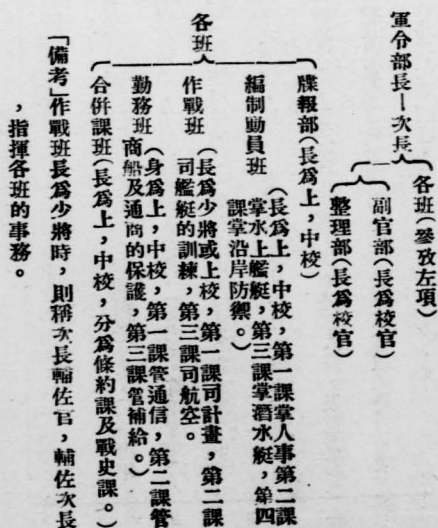 軍令部長—次長
各班(參攷左項)
副官部(長爲校官)
整理部(長爲校官)
各班
牒報部(長爲上,中校)
編制動員班
(長爲上,中校,第一課掌人事第二課
掌水上艦艇,第三課掌潛水艇,第四
課掌沿岸防禦。)
作戰班
(長爲少將或上校,第一課司計畫,第二課
司艦艇的訓練,第三課司航空。
勤務班
(身爲上,中校,第一課管通信,第二課管
商船及通商的保護,第三課管補給。)
合併課班(長爲上,中校,分爲條約課及戰史課。)
「備考」作戰班長爲少將時,則稱次長輔佐官,輔佐次長
,指揮各班的事務。